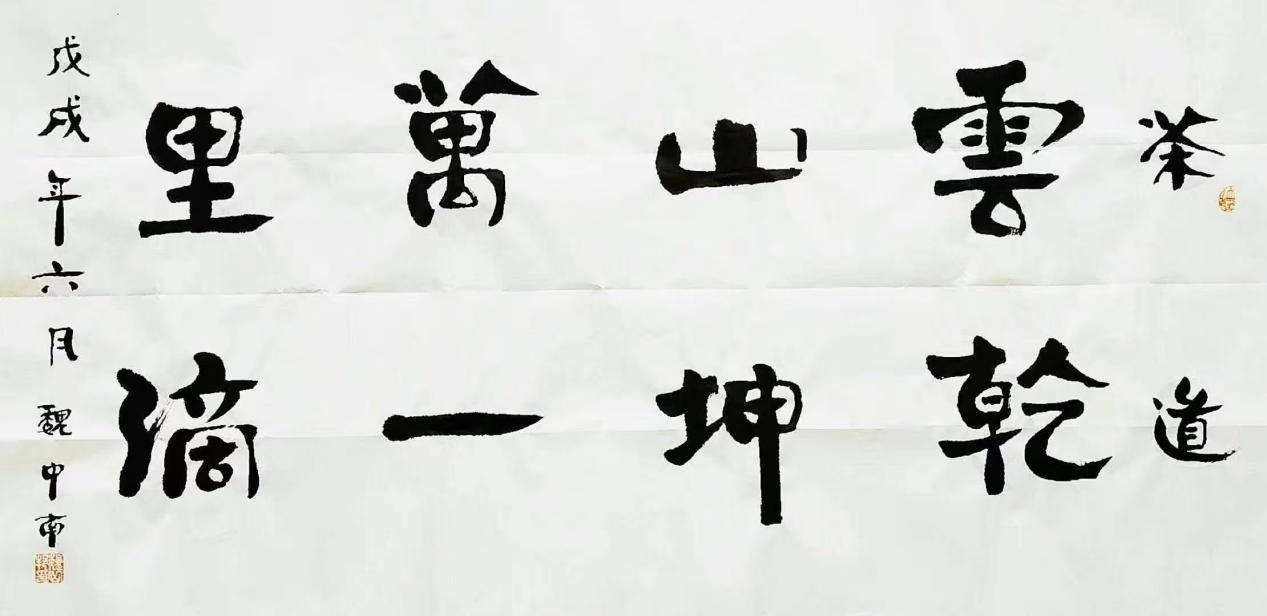 茶道
雲山萬里
乾坤一滴
戊戌年六月 魏中南